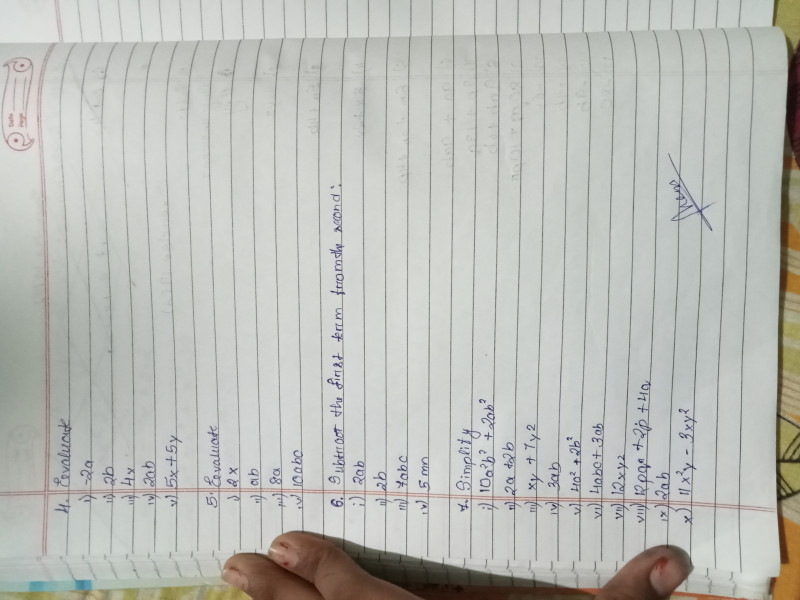 4. Evaluate
i) -2a
ii) 2b
iii) 4x
iv) 2ab
v) 5x+5y
5. Evaluate
i) 2x
ii) ab
iii) 8a
iv) 10abc
6. Subtract the first term from the second:
i) 2ab
ii) 2b
iii) 7abc
iv) 5mn
7. Simplify
i) 10a²b² + 2ab²
ii) 2a + 2b
iii) xy + 7yz
iv) 3ab
v) 4a² + 2b²
vi) 4abc + 3ab
vii) 12xyz
viii) 12pqr + 2p + 4q
ix) 2ab
x) 11x²y - 3xy²